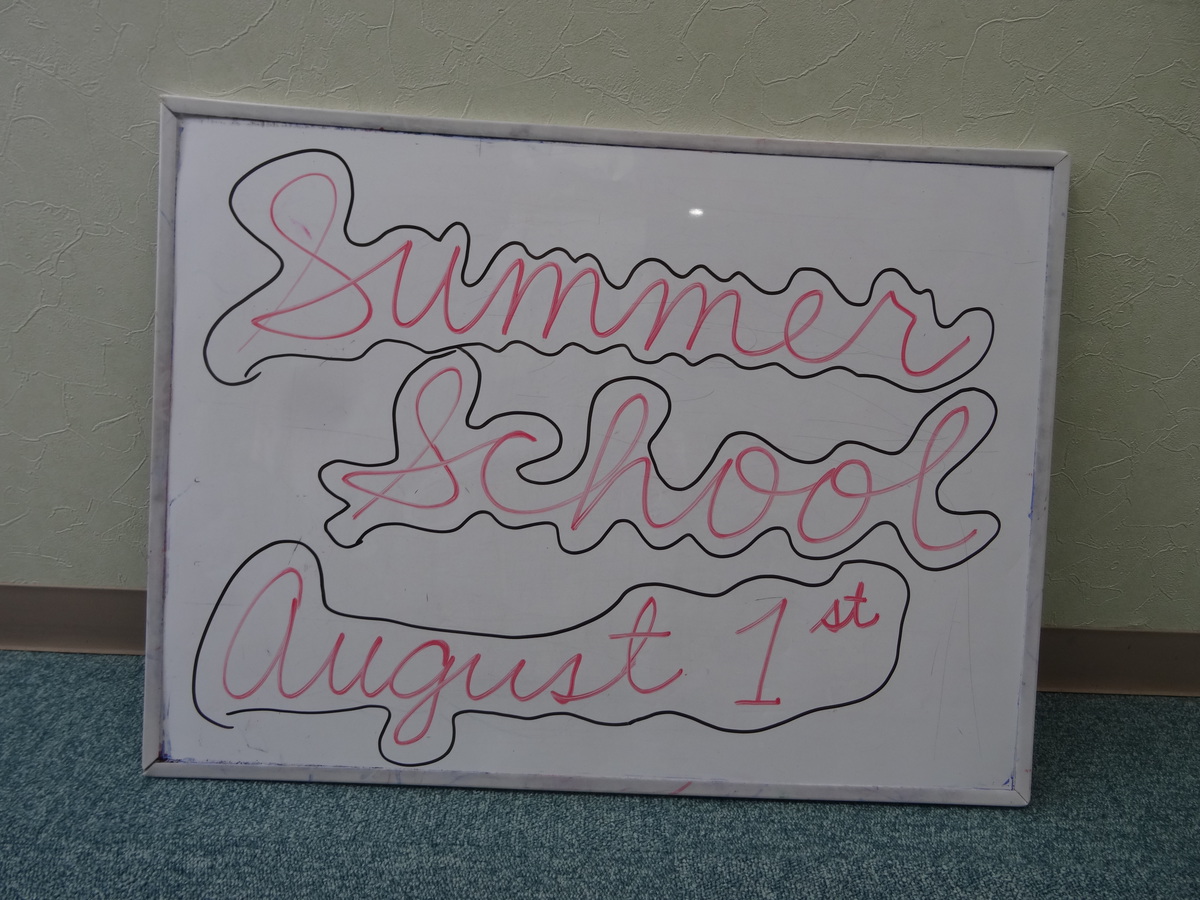 Summer
School
August 1st